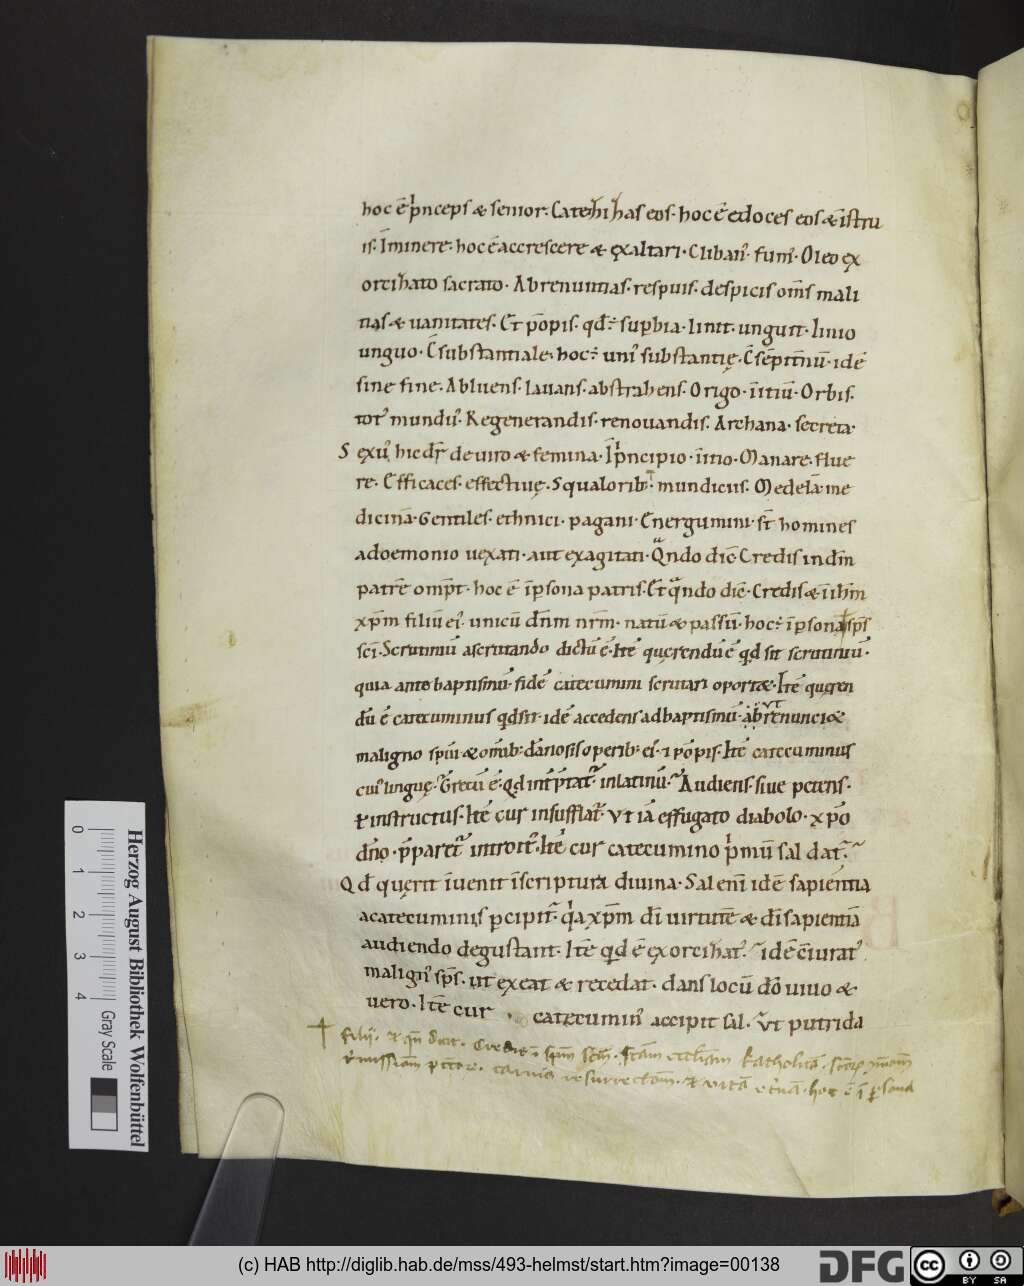 hoc ē p̄nceps & senior. Catehihas eos. hoc ē edoces eos & īstru
is. Īminere. hoc ē accrescere & exaltari. Clibanꝰ. furnꝰ. Oleo ex
orcihato sacrato. Abrenuntias. respuis. despicis om̄s mali
tias & uanitates. Et pōpis. qd ē supbia. linit. unguit. linio
unguo. Csubstantiale. hoc ē uniꝰ substantię. idē
sine fine. Abluens. lauans. abstrahens. Origo. initiū. Orbis.
totꝰ mundiꝰ. Regenerandis. renouandis. Archana. secreta.
Sexuꝰ hic dr̄ de uiro & femina. Ip̄ncipio. initio. Manare. flue
re. Efficaces. effectiuę. Squalorib; mundiciis. Medelā. me
dicinā. Gentiles. ethnici. pagani. Energumini. st̄ homines
a doemonio uexati. aut exagitati. Qn̄do dic̄. Credis in dm̄
patrē omp̄t. hoc ē īpsona patris. Et qn̄do dic̄. Credis & ī ihm̄
xp̄m filiū eiꝰ unicū dn̄m nr̄m. natū & passū. hoc ē īpsona sp̄s
sc̄i. Scrutiniū a scrutando dictū ē. Itē querendū ē qd sit scrutiniū.
quia ante baptismū fidē catecumini scrutari oport&. Itē quęren
dū ē catecuminus qd sit. idē accedens ad baptismū. abrenunci&
maligno sp̄ui & omīb; dānosis operib; eiꝰ. & pōpis. Itē catecuminus
cuiꝰ linguę. Grecū ē. Qd int̄p̄tat̄ in latinū. Audiens. siue petens.
& instructus. Itē cur insufflat̄. Vt iā effugato diabolo. xp̄o
dn̄o. p̄paret̄ introitꝰ. Itē cur catecumino p̄mū sal dat̄.
Qd querit īuenit ī scriptura diuina. Sal enī idē sapientia
a catecuminis pcipit̄. q̄a xp̄m dī uirtutē & dī sapientiā
audiendo degustant. Itē qd ē exorcihat̄. idē cīurat̄
malignꝰ sp̄s. ut exeat & recedat. dans locū dō uiuo &
uero. Itē cur catecuminꝰ accipit sal. Vt putrida
filij. & qn̄ dicit. Credis ī spm̄ scm̄. scām eccliam katholicā. scōrꝝ
remissiōm pctōrꝝ. carnis resurrectōm. & vitā et̄nā. hoc ē ī psona
Herzog August Bibliothek Wolfenbüttel
0 1 2 3 4 Gray Scale
(c) HAB http://diglib.hab.de/mss/493-helmst/start.htm?image=00138
DFG
cc BY SA